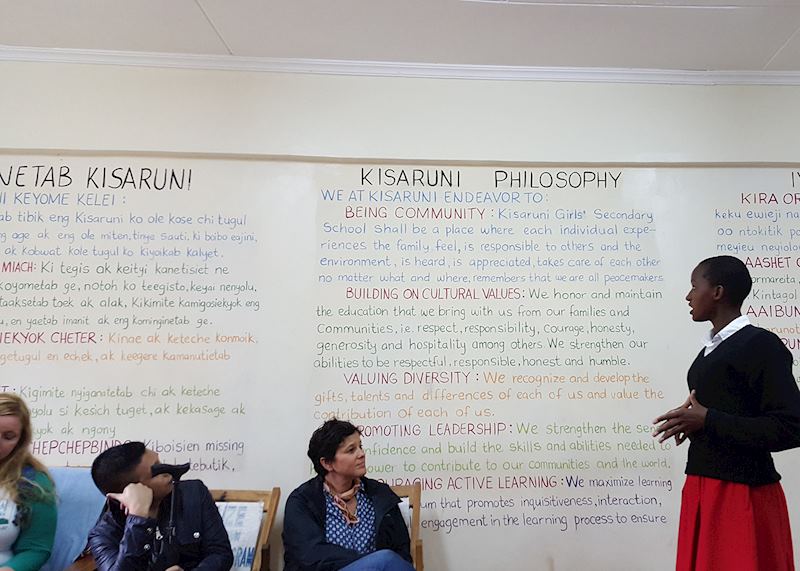 NETAB KISARUNI
KEYOME KELEI :
tibik eng Kisaruni ko ole kose chi tugul
age ak eng ole miten, tinye sauti, ki boibo eajini,
ak kobwat kole tugul ko kiyokab kalyet.
MIACH: Ki tegis ak keityi kanetisiet ne
koyometab ge, notoh ko teegisto, keyai nenyolu,
taaksetab toek ak alak, Kikimite kamigosiekyok eng
en yaetab imanit ak eng kominginetab ge.
IEKYOK CHETER : Kinae ak keteche konmoik,
getugul en echek, ak keegere kamanutietab
Kigimite nyiganatetab chi ak keteche
nyolu si kesich tuget, ak kekasage ak
ak ngony
CHEPCHEPBINDO Kiboisien missing
tebutik,
KISARUNI PHILOSOPHY
WE AT KISARUNI ENDEAVOR TO :
BEING COMMUNITY : Kisaruni Girls' Secondary
School shall be a place where each individual expe-
riences the family feel, is responsible to others and the
environment, is heard, is appreciated, takes care of each other
no matter what and where, remembers that we are all peacemakers
BUILDING ON CULTURAL VALUES: We honor and maintain
the education that we bring with us from our families and
Communities, i.e. respect, responsibility, courage, honesty,
generosity and hospitality among others. We strengthen our
abilities to be respectful, responsible, honest and humble.
VALUING DIVERSITY : We recognize and develop the
gifts, talents and differences of each of us and value the
contribution of each of us.
PROMOTING LEADERSHIP: We strengthen the
confidence and build the skills and abilities needed to
power to contribute to our communities and the world.
OURAGING ACTIVE LEARNING: We maximize learning
um that promotes inquisitiveness, interaction,
engagement in the learning process to ensure
KIRA OR
keku ewieji na
oo ntokitik po
meyieu neyiolo
AASHET
ormareita
Kintagol
AAIBUN